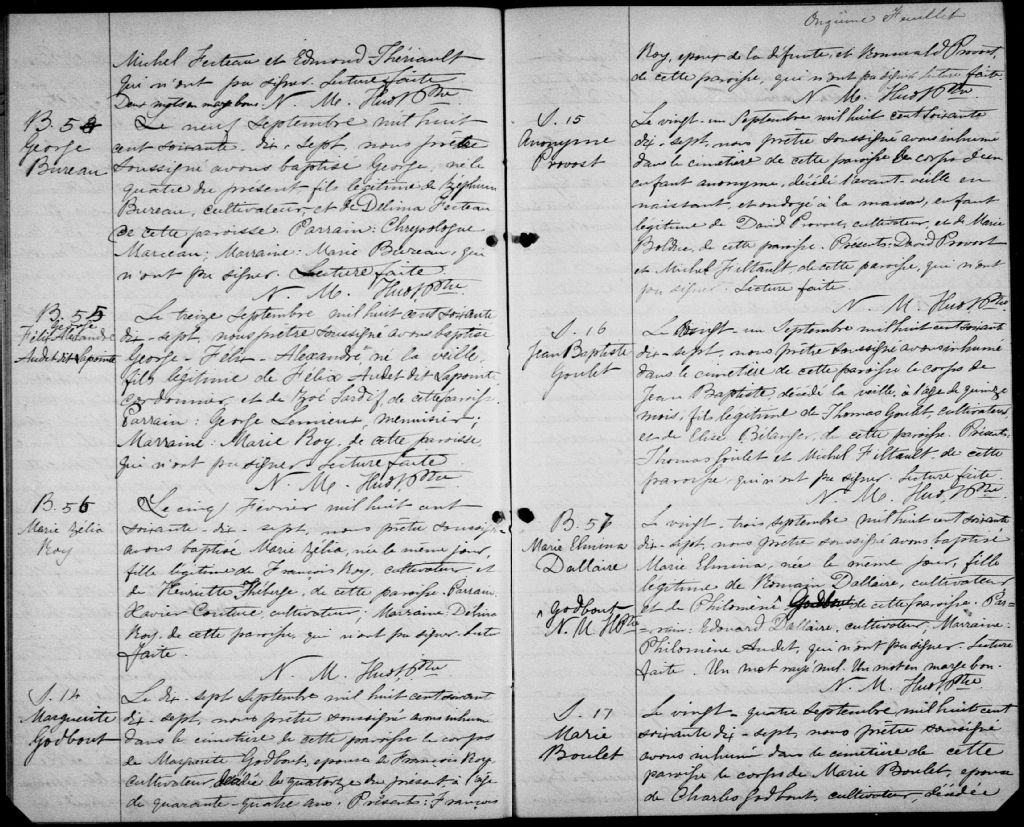 Michel Feuteau et Edmond Thériault
qui n'ont pu signer. Lecture faite.
Deux mots en marge bons. N. M. Huot, Ptre
B. 54
George
Bureau
Le neuf Septembre mil huit
cent soixante-dix-sept, nous prêtre
soussigné avons baptisé George, né le
quatre du présent, fils légitime de Zéphirin
Bureau, cultivateur, et de Délima Feuteau
de cette paroisse. Parrain: Chrysologue
Marceau; Marraine: Marie Bureau, qui
n'ont pu signer. Lecture faite.
N. M. Huot, Ptre
B. 55
George
Félix Alexandre
Audet dit Lapointe
Le treize Septembre mil huit cent soixante
dix-sept, nous prêtre soussigné avons baptisé
George-Félix-Alexandre, né la veille,
fils légitime de Félix Audet dit Lapointe,
cordonnier, et de Zoé Tardif, de cette paroisse.
Parrain: George Lemieux, menuisier;
Marraine: Marie Roy, de cette paroisse,
qui n'ont pu signer. Lecture faite.
N. M. Huot, Ptre
B. 56
Marie Zélia
Roy
Le cinq Février mil huit cent
soixante-dix-sept, nous prêtre soussigné
avons baptisé Marie Zélia, née le même jour,
fille légitime de François Roy, cultivateur et
de Henriette Théberge, de cette paroisse. Parrain:
Xavier Couture, cultivateur; Marraine Délima
Roy, de cette paroisse, qui n'ont pu signer. Lecture
faite.
N. M. Huot, Ptre
S. 14
Marguerite
Godbout
Le dix-sept Septembre mil huit cent soixante
dix-sept, nous prêtre soussigné avons inhumé
dans le cimetière de cette paroisse le corps
de Marguerite Godbout, épouse de François Roy,
cultivateur, décédée le quatorze du présent, à l'âge
de quarante-quatre ans. Présents: François
Onzième Feuillet
Roy, époux de la défunte, et Romuald Provost,
de cette paroisse, qui n'ont pu signer. Lecture faite.
N. M. Huot, Ptre
S. 15
Anonyme
Provost
Le vingt-un Septembre mil huit cent soixante
dix-sept, nous prêtre soussigné avons inhumé
dans le cimetière de cette paroisse le corps d'un
enfant anonyme, décédé l'avant-veille en
naissant, et ondoyé à la maison, enfant
légitime de David Provost, cultivateur, et de Marie
Boldue, de cette paroisse. Présents: David Provost
et Michel Filtault, de cette paroisse, qui n'ont
pu signer. Lecture faite.
N. M. Huot, Ptre
S. 16
Jean Baptiste
Goulet
Le vingt-un Septembre mil huit cent soixante
dix-sept, nous prêtre soussigné avons inhumé
dans le cimetière de cette paroisse le corps de
Jean Baptiste décédé la veille, à l'âge de quinze
mois, fils légitime de Thomas Goulet, cultivateur
et de Elise Bélanger, de cette paroisse. Présents:
Thomas Goulet et Michel Filtault de cette
paroisse, qui n'ont pu signer. Lecture faite.
N. M. Huot, Ptre
B. 57
Marie Elmina
Dallaire
^ Godbout
N. M. H Ptre
Le vingt-trois septembre mil huit cent soixante
dix-sept, nous prêtre soussigné avons baptisé
Marie Elmina, née le même jour, fille
légitime de Romain Dallaire, cultivateur
et de Philomène ^ Godbout de cette paroisse. Par-
=rain: Edouard Dallaire, cultivateur; Marraine:
Philomène Audet, qui n'ont pu signer. Lecture
faite. Un mot rayé nul. Un mot en marge bon.
N. M. Huot, Ptre
S. 17
Marie
Boulet
Le vingt-quatre Septembre mil huit cent
soixante dix-sept, nous prêtre soussigné
avons inhumé dans le cimetière de cette
paroisse le corps de Marie Boulet, épouse
de Charles Godbout, cultivateur, décédée